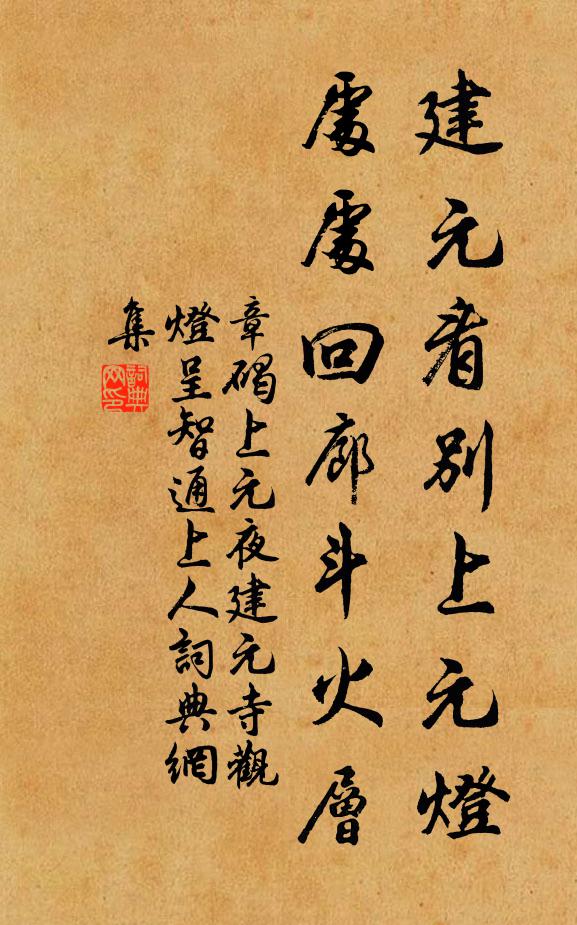 建元看別上元燈
處處回廊斗火層
章碣上元夜建元寺觀
燈呈智通上人詞典網
集
詞典
网印